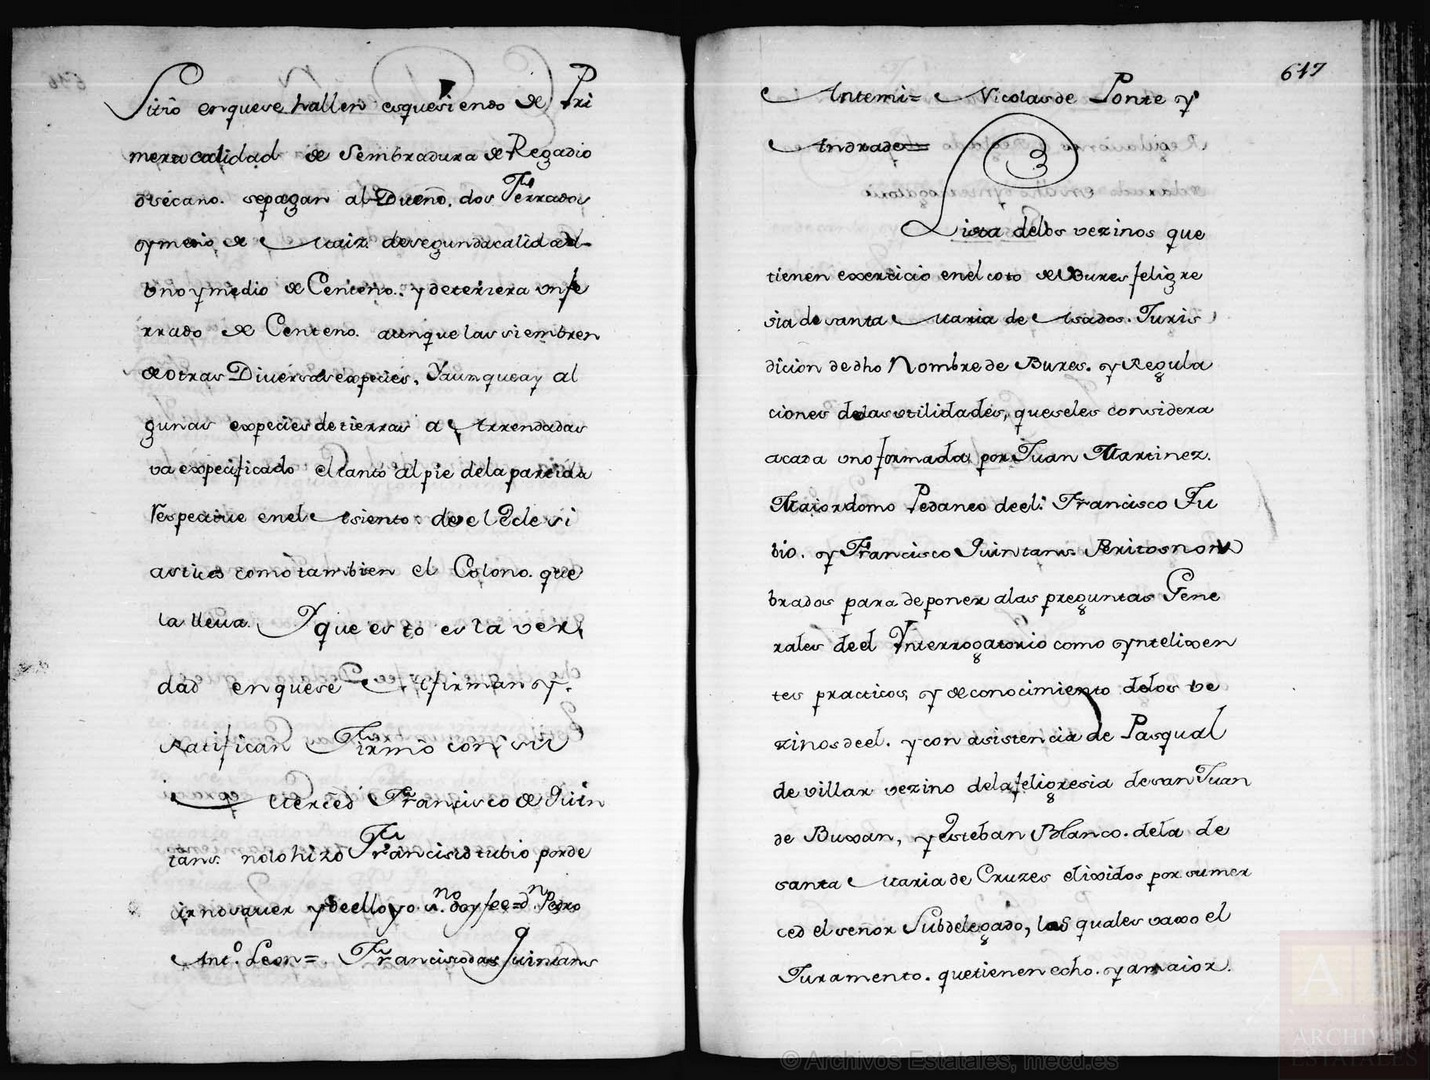 Sitio enquese hallen esquesiendo de Pri
mera calidad de Sembradura de Regadio
osecano. sepagan al Dueño. dos Ferrados
ymedio de Maiz. desegundacalidad
Uno ymedio de Centeno. ydetersera unfe
rrado de Centeno. aunque las siembren
de otras Diversas expecies, Yaunqueay al
gunas expecies detierras a Arrendadas
va expecificado eltanto alpie dela partida
Respective enel Asiento de el Eclesi
astico como tambien el Colono. que
la lleva. Y que esto es la ver
dad enquese Afirman y
Ratifican Firmo con su
Merced Francisco de Quin
tans nolohizo Francisco tubio porde
cir nosaver yde ello yo sno. doy fee= dn. Pedro
Anto. Leon= Francisco das Quintans
617
Antemi= Nicolas de Ponte y
Andrade=
Lista delos vezinos que
tienen exercicio enel coto de Bures felig re
sia de santa Maria de Asados. Juris
dicion de dho Nombre de Bures. y Regula
ciones delas utilidades, queseles considera
acada uno formada por Juan Martinez.
Maiordomo Pedaneo deel: Francisco Tu
bio. y Francisco Quintans Peritos nom
brados para deponer alas preguntas Gene
rales deel Ynterrogatorio como yntelixen
tes practicos, y de conocimiento delos ve
zinos deel. y con asistencia de Pasqual
de villar vezino dela feligresia desan Juan
de Buxan, y Esteban Blanco. dela de
santa Maria de Cruzes elixidos por sumer
ced el señor Subdelegado, los quales vaxo el
Juramento. quetienen echo. y amaior.
© Archivos Estatales, mecd.es
A
ARCHIVOS
ESTATALES